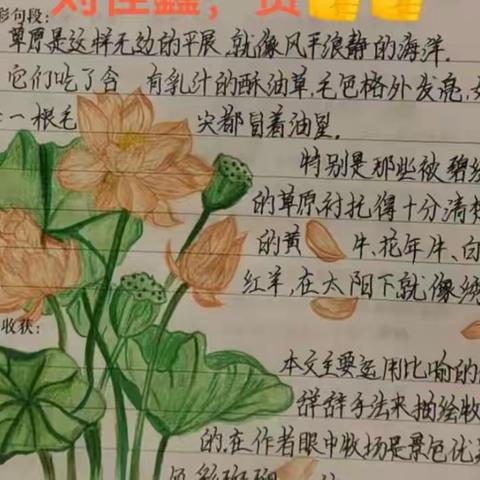 彩句段:
草原是这样无边的平展,就像风平浪静的海洋.
它们吃了含 有乳汁的酥油草,毛色格外发亮,好
一根毛 尖都冒着油星.
特别是那些被碧绿
的草原衬托得十分清楚
的黄 牛、花牛、白
红羊,在太阳下就像绣
收获:
本文主要运用比喻的
辞手法来描绘牧
的.在作者眼中牧场是景色优美